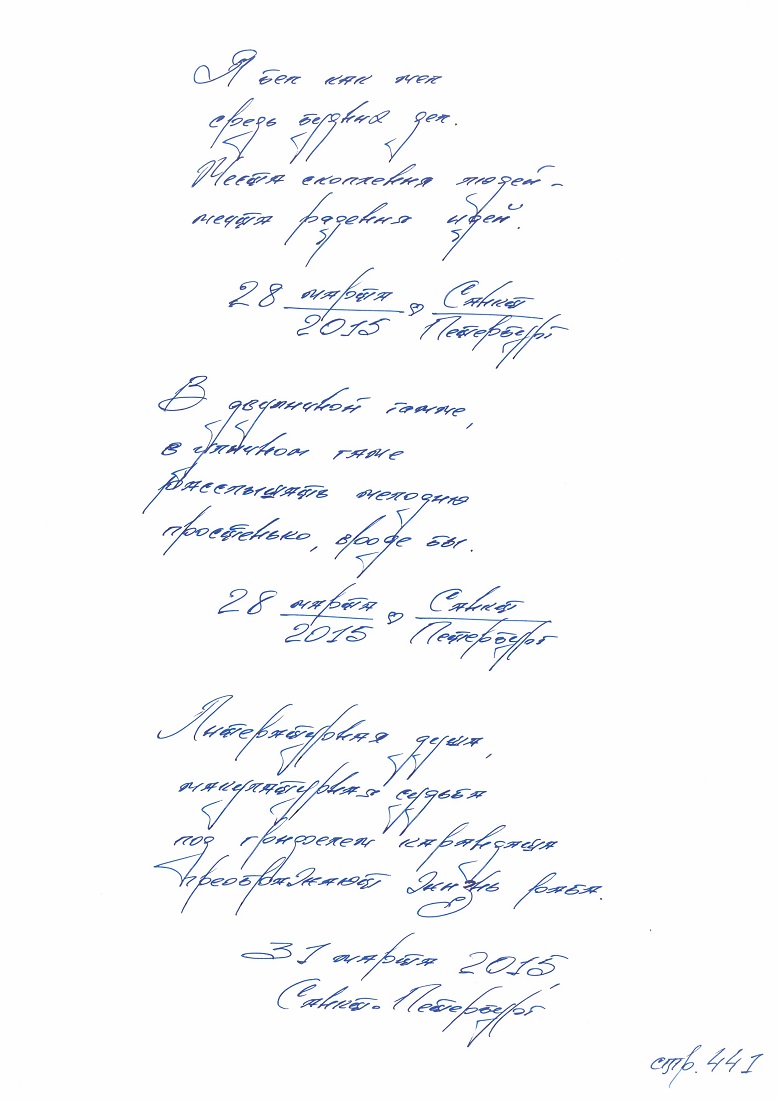 Я бел как мел
средь бурных дел.
Места скопления людей -
мечта радения идей.
28 марта 2015, Санкт Петербург
В двуличной гамме,
в уличном гаме
расслышать мелодию
простенько, вроде бы.
28 марта 2015, Санкт Петербург
Литературная душа,
макулатурная судьба
под грифелем карандаша
преображают жизнь раба.
31 марта 2015,
Санкт-Петербург
стр. 441